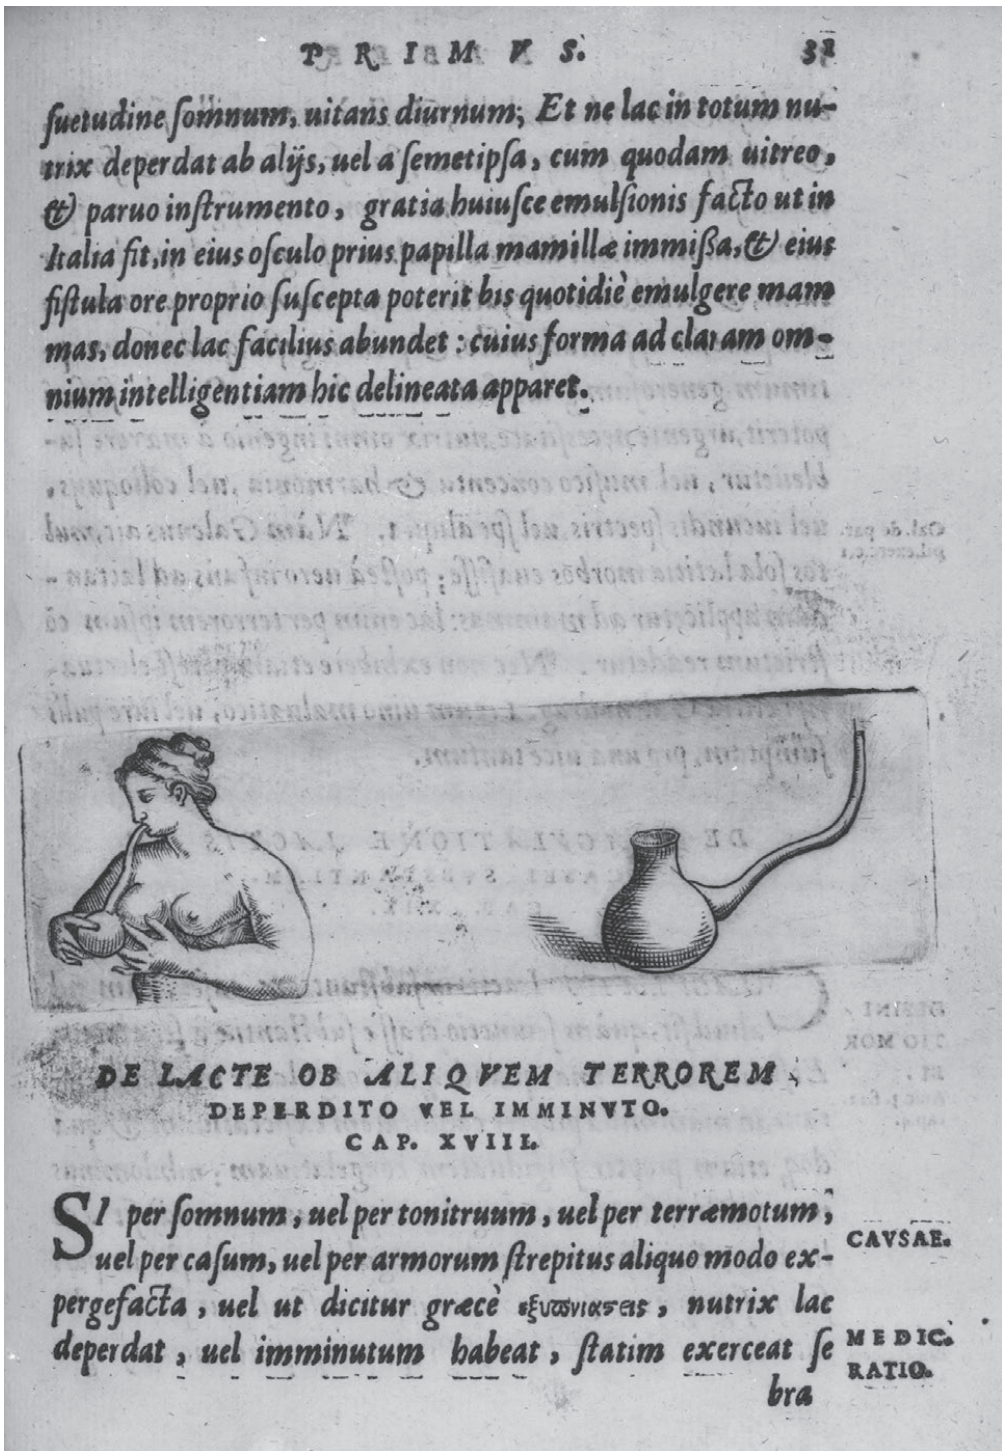 PRIMVS. 31
ſuetudine ſomnum, uitans diurnum; Et ne lac in totum nu-
trix deperdat ab alijs, uel a ſemetipſa, cum quodam uitreo,
& paruo inſtrumento, gratia huiuſce emulſionis facto ut in
Italia fit, in eius oſculo prius papilla mamillæ immiſſa, & eius
fiſtula ore proprio ſuſcepta poterit bis quotidiè emulgere mam
mas, donec lac facilius abundet : cuius forma ad claram om-
nium intelligentiam hic delineata apparet.
DE LACTE OB ALIQVEM TERROREM
DEPERDITO VEL IMMINVTO.
CAP. XVIII.
SI per ſomnum, uel per tonitruum, uel per terræmotum,
uel per caſum, uel per armorum ſtrepitus aliquo modo ex-
CAVSAE.
pergefacta, uel ut dicitur græcè , nutrix lac
deperdat, uel imminutum habeat, ſtatim exerceat ſe
MEDIC.
RATIO.
bra